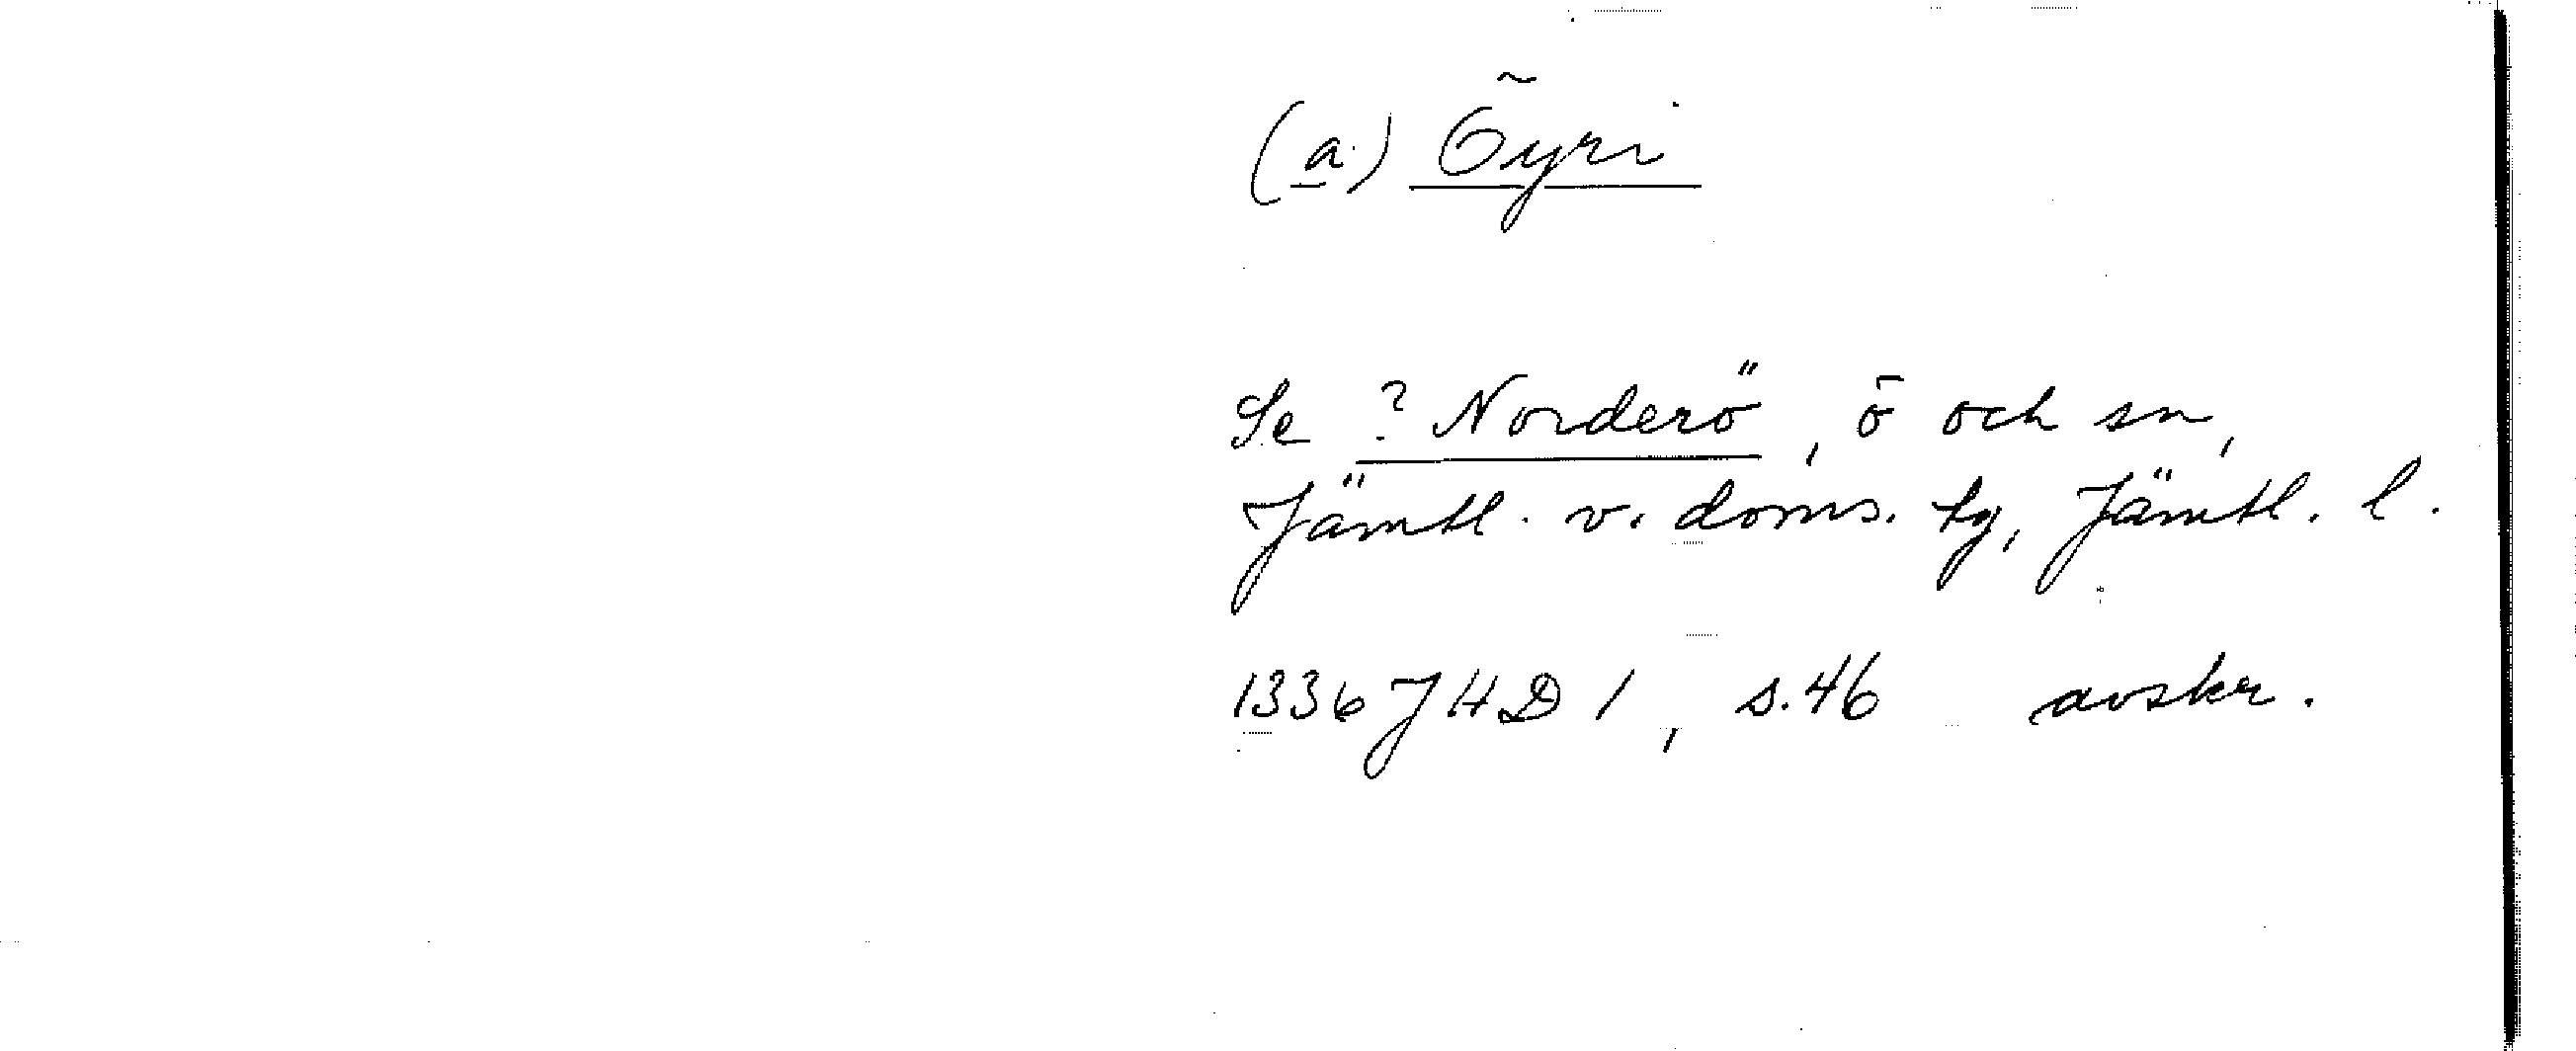 (a) Öyri
Se ? Norderö, ö och sn,
Jämtl. v. doms. tg, Jämtl. l.
1336 JHD 1, s. 46 avskr.